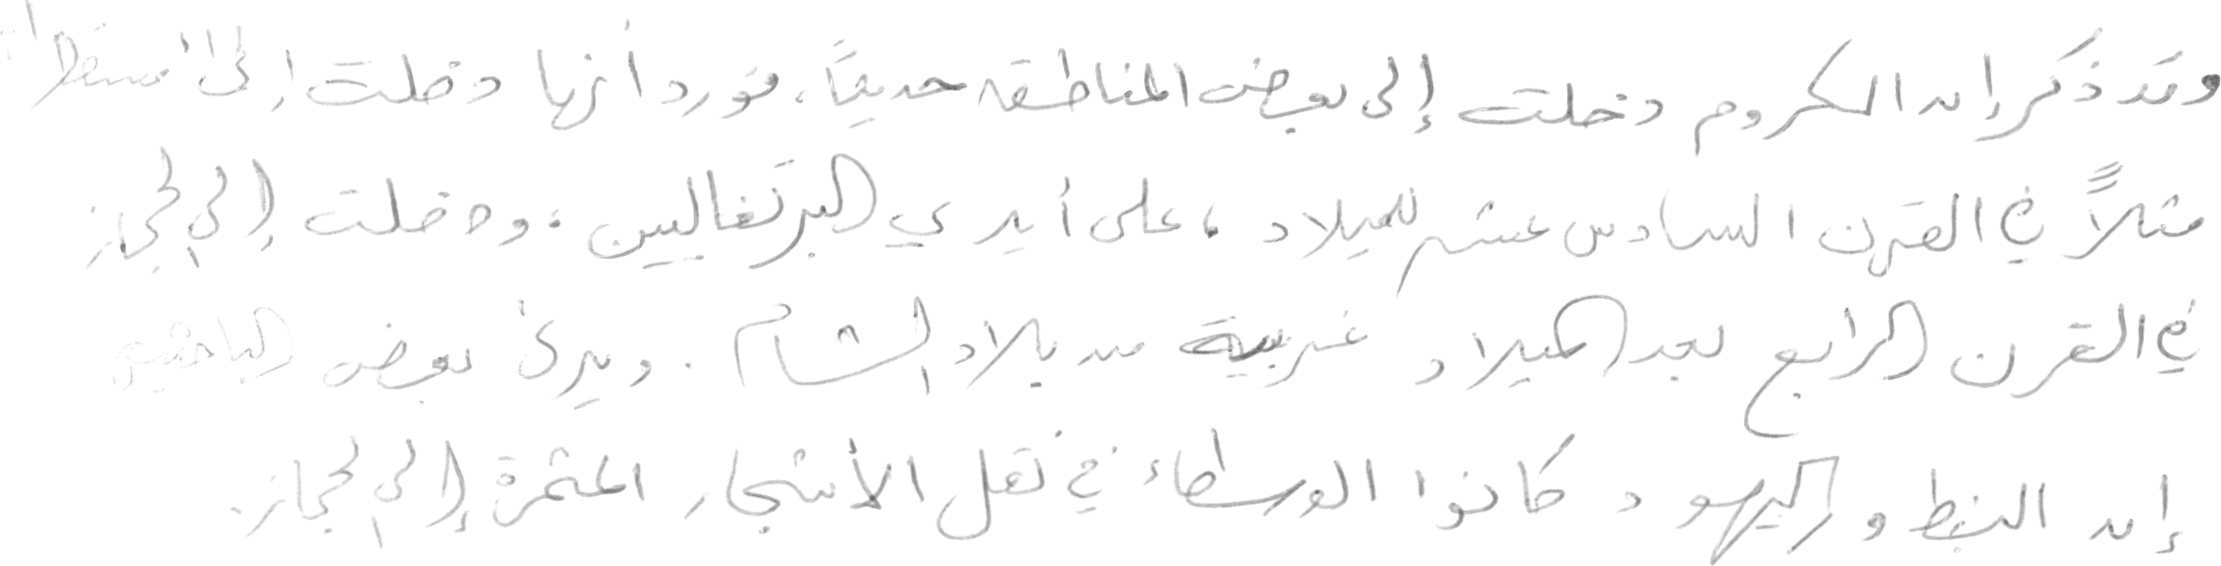 وقد ذكر إن الكروم دخلت إلى بعض المناطق حديثاً، فورد أنها دخلت إلى "مسقط"
مثلاً في القرن السادس عشر للميلاد، على أيدي البرتغاليين، ودخلت إلى الحجاز
في القرن الرابع بعد الميلاد غربية من بلاد الشام. ويرى بعض الباحثين
إن النبط واليهود كانوا الوسطاء في نقل الأشجار المثمرة إلى الحجاز.